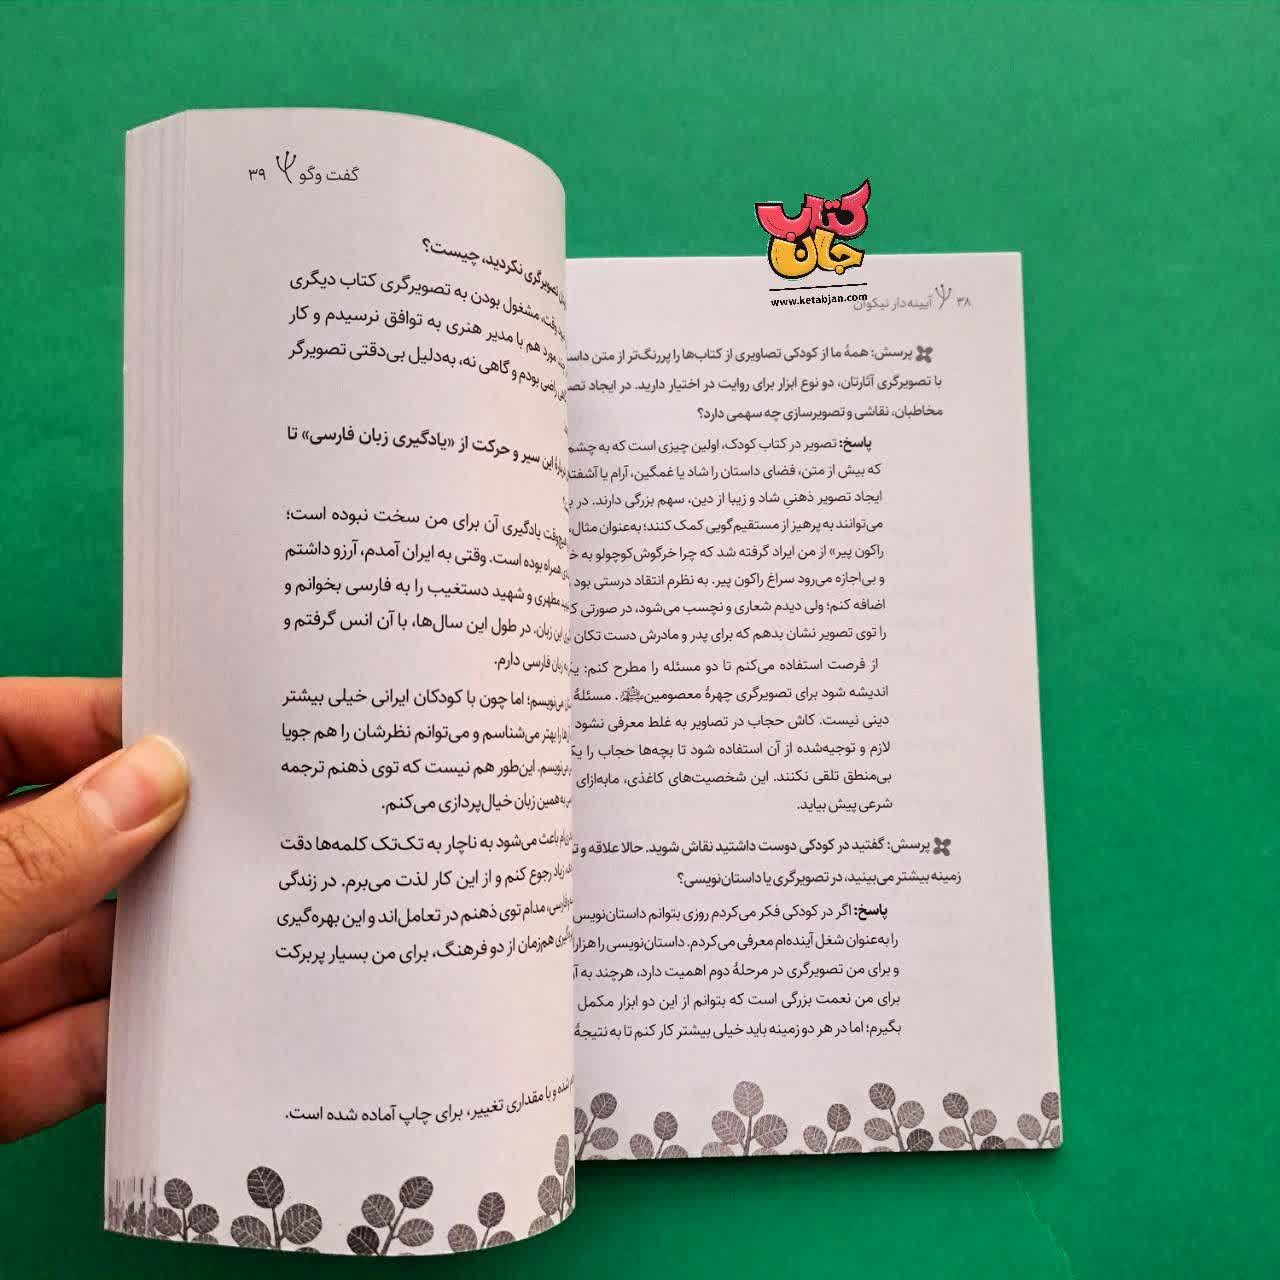 کتاب
جان
www.ketabjan.com
۳۸ آیینه‌دار نیکوان
پرسش: همهٔ ما از کودکی تصاویری از کتاب‌ها را پررنگ‌تر از متن
با تصویرگری آثارتان، دو نوع ابزار برای روایت در اختیار دارید. در ایجاد
مخاطبان، نقاشی و تصویرسازی چه سهمی دارد؟
پاسخ: تصویر در کتاب کودک، اولین چیزی است که به چشم
که بیش از متن، فضای داستان را شاد یا غمگین، آرام یا
ایجاد تصویر ذهنیِ شاد و زیبا از دین، سهم بزرگی دارند. در
می‌توانند به پرهیز از مستقیم‌گویی کمک کنند؛ به‌عنوان مثال،
راکون پیر» از من ایراد گرفته شد که چرا خرگوش‌کوچولو به
و بی‌اجازه می‌رود سراغ راکون پیر. به نظرم انتقاد درستی بود
اضافه کنم؛ ولی دیدم شعاری و نچسب می‌شود، در صورتی
را توی تصویر نشان بدهم که برای پدر و مادرش دست تکان
از فرصت استفاده می‌کنم تا دو مسئله را مطرح کنم:
اندیشه شود برای تصویرگری چهرهٔ معصومین. مسئلهٔ
دینی نیست. کاش حجاب در تصاویر به غلط معرفی نشود
لازم و توجیه‌شده از آن استفاده شود تا بچه‌ها حجاب را
بی‌منطق تلقی نکنند. این شخصیت‌های کاغذی، مابه‌ازای
شرعی پیش بیاید.
پرسش: گفتید در کودکی دوست داشتید نقاش شوید. حالا علاقه و
زمینه بیشتر می‌بینید، در تصویرگری یا داستان‌نویسی؟
پاسخ: اگر در کودکی فکر می‌کردم روزی بتوانم داستان‌نویس
را به‌عنوان شغل آینده‌ام معرفی می‌کردم. داستان‌نویسی را
و برای من تصویرگری در مرحلهٔ دوم اهمیت دارد، هرچند به
برای من نعمت بزرگی است که بتوانم از این دو ابزار مکمل
بگیرم؛ اما در هر دو زمینه باید خیلی بیشتر کار کنم تا به نتیجهٔ
گفت وگو ۳۹
تصویرگری نکردید، چیست؟
وقت، مشغول بودن به تصویرگری کتاب دیگری
مورد هم با مدیر هنری به توافق نرسیدم و کار
راضی بودم و گاهی نه، به‌دلیل بی‌دقتی تصویرگر
این سیر و حرکت از «یادگیری زبان فارسی» تا
هیچ‌وقت یادگیری آن برای من سخت نبوده است؛
همراه بوده است. وقتی به ایران آمدم، آرزو داشتم
مطهری و شهید دستغیب را به فارسی بخوانم و
این زبان. در طول این سال‌ها، با آن انس گرفتم و
به زبان فارسی دارم.
می‌نویسم؛ اما چون با کودکان ایرانی خیلی بیشتر
را بهتر می‌شناسم و می‌توانم نظرشان را هم جویا
می‌نویسم. این‌طور هم نیست که توی ذهنم ترجمه
به همین زبان خیال‌پردازی می‌کنم.
باعث می‌شود به ناچار به تک‌تک کلمه‌ها دقت
زیاد رجوع کنم و از این کار لذت می‌برم. در زندگی
فارسی، مدام توی ذهنم در تعامل‌اند و این بهره‌گیری
هم‌زمان از دو فرهنگ، برای من بسیار پربرکت
شده و با مقداری تغییر، برای چاپ آماده شده است.